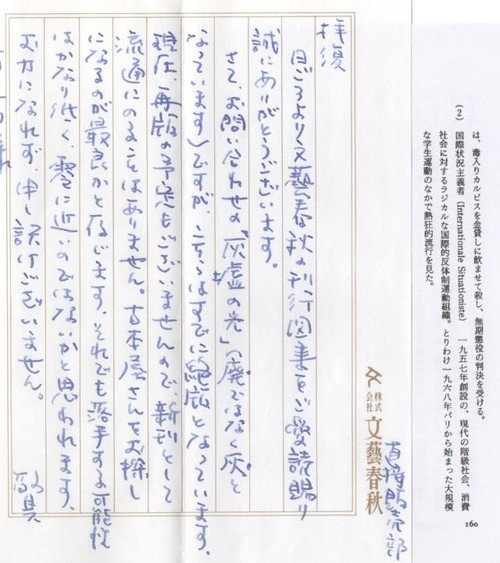 は、毒入りカルピスを金貸しに飲ませて殺し、無期懲役の判決を受ける。
(2) 国際状況主義者（Internationale Situationniste） 一九五七年創設の、現代の階級社会、消費
社会に対するラジカルな国際的反体制運動組織。とりわけ一九六八年パリから始まった大規模
な学生運動のなかで熱狂的流行を見た。
160
拝復
日ごろより文藝春秋の刊行図書をご愛読賜り
誠にありがとうございます。
さて、お問い合わせの「灰墟の光」（廃ではなく灰と
なっています）ですが、こちらはすでに絶版となっています。
現在、再版の予定もございませんので、新刊として
流通にのることはありません。古本屋さんをお探し
になるのが最良かと存じます。それでも落手する可能性
はかなり低く、零に近いのではないかと思われます。
お力になれず、申し訳ございません。
敬具
株式会社 文藝春秋
直接販売部